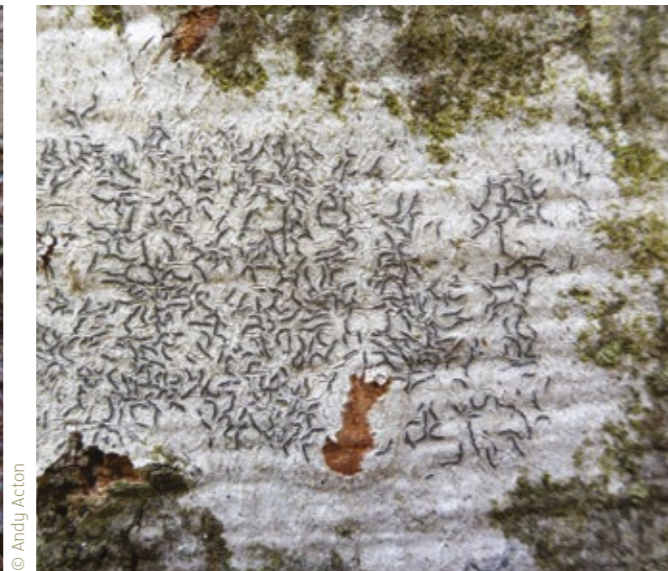 © Andy Acton